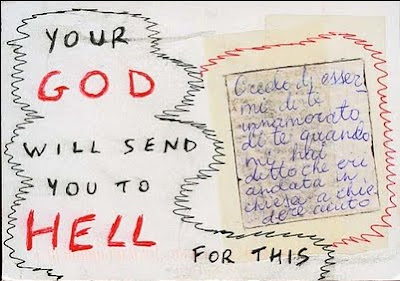 YOUR
GOD
WILL SEND
YOU TO
HELL
FOR THIS
Credo di esser
mi di te
innamorato
di te quando
mi hai
detto che eri
andata in
chiesa a chie
dere aiuto